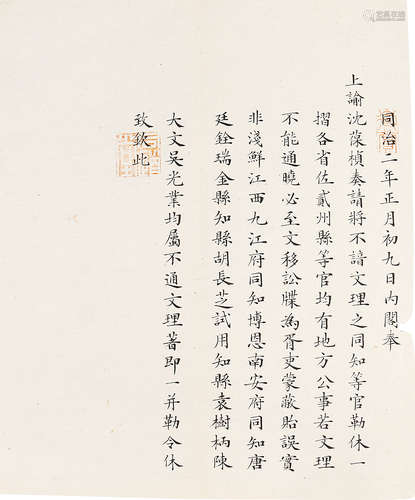 同治二年正月初九日內閣奉
上諭沈葆楨奏請將不諳文理之同知等官勒休一
摺各省佐貳州縣等官均有地方公事若文理
不能通曉必至文移訟牒為胥吏蒙蔽貽誤實
非淺鮮江西九江府同知博恩南安府同知唐
廷銓瑞金縣知縣胡長芝試用知縣袁樹柄陳
大文吳光業均屬不通文理著即一并勒令休
致欽此